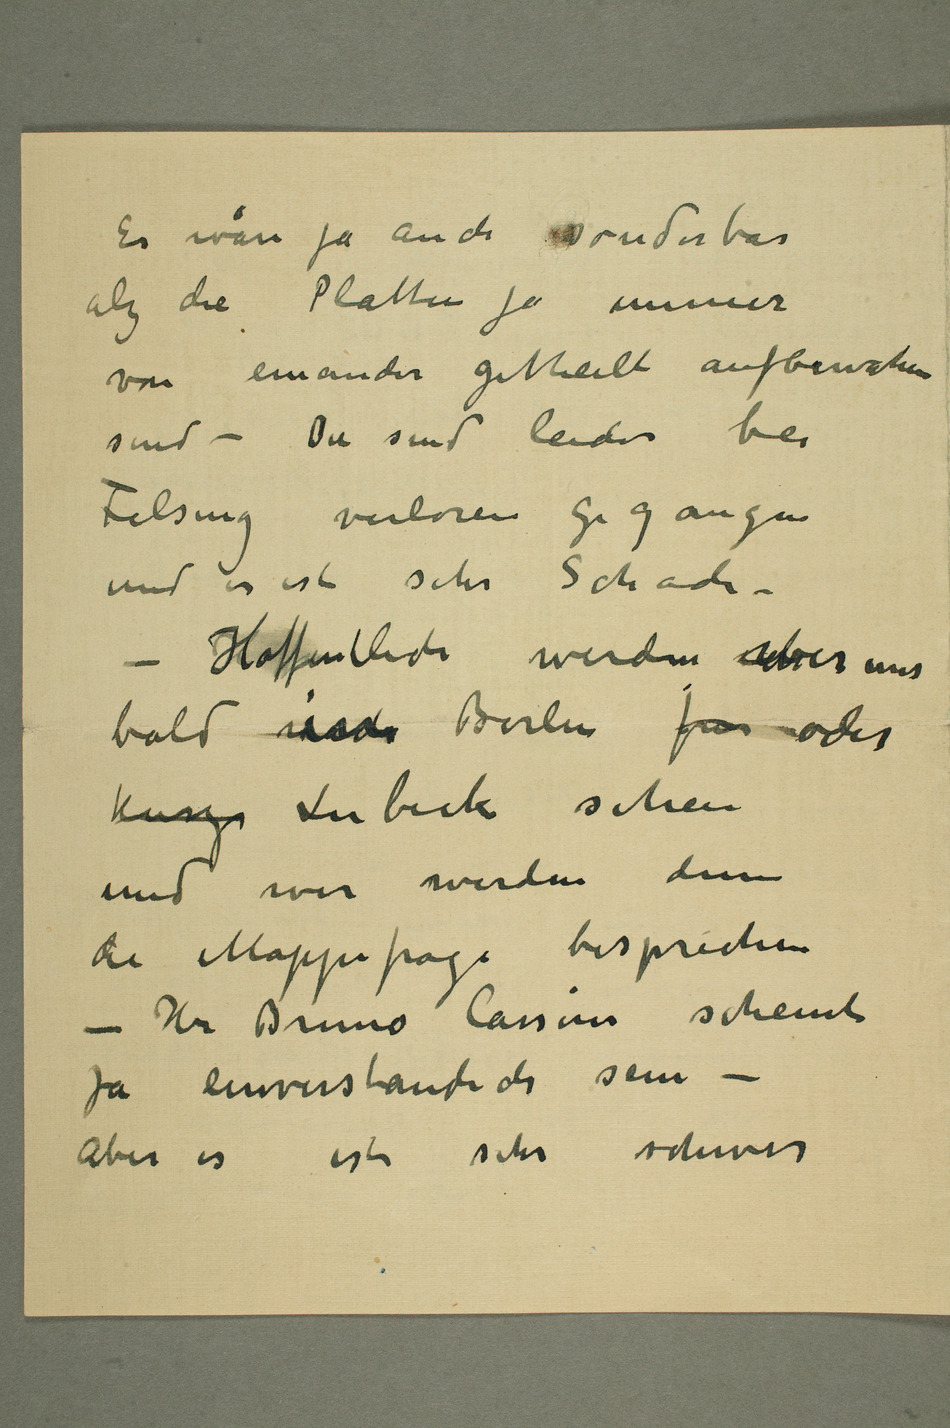 Es wäre ja auch sonderbar
alz die Platten ja immer
von einander getheilt aufbewahren
sind – Die sind leider bei
Felsing verloren gegangen
und es ist sehr Schade –
– Hoffentlich werden wir uns
bald in Berlin oder
Lübeck sehen
und wir werden dann
die Mappefrage besprechen
– Hr Bruno Cassirer scheint
ja einverstanden sein –
Aber es ist sehr schwer